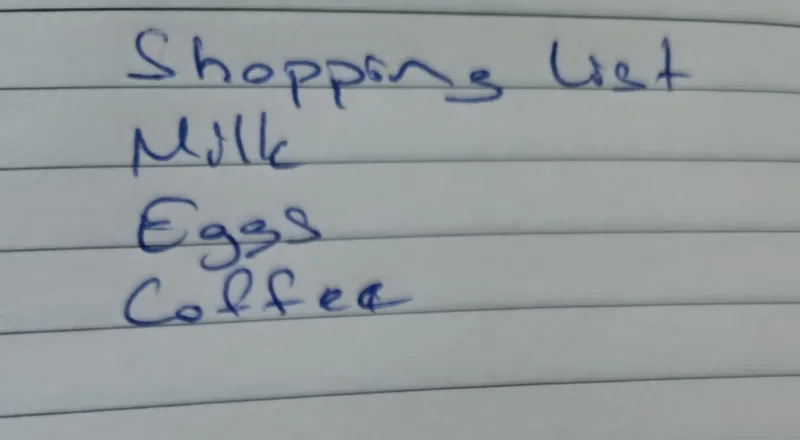 Shopping list
Milk
Eggs
Coffee